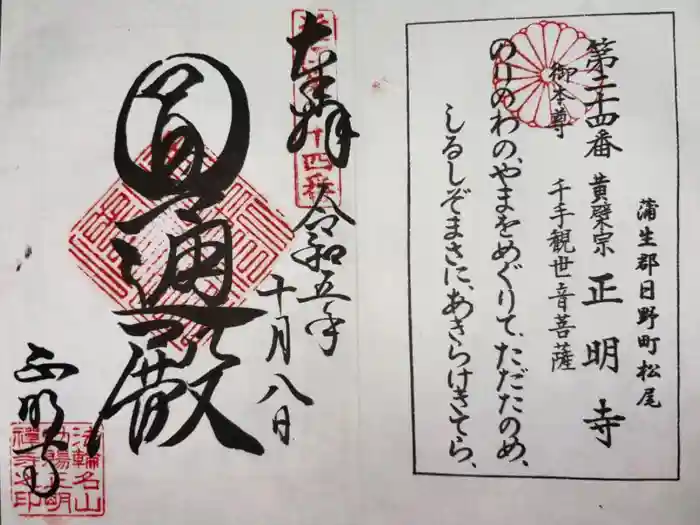 蒲生郡日野町松尾
第二十四番 黄檗宗 正明寺
御本尊 千手観世音菩薩
のりのわの、やまをめぐりて、ただたのめ、
しるしぞまさに、あきらけきてら、
奉拝
十四番
令和五年
十月八日
圓通殿
正明寺
法輪名山